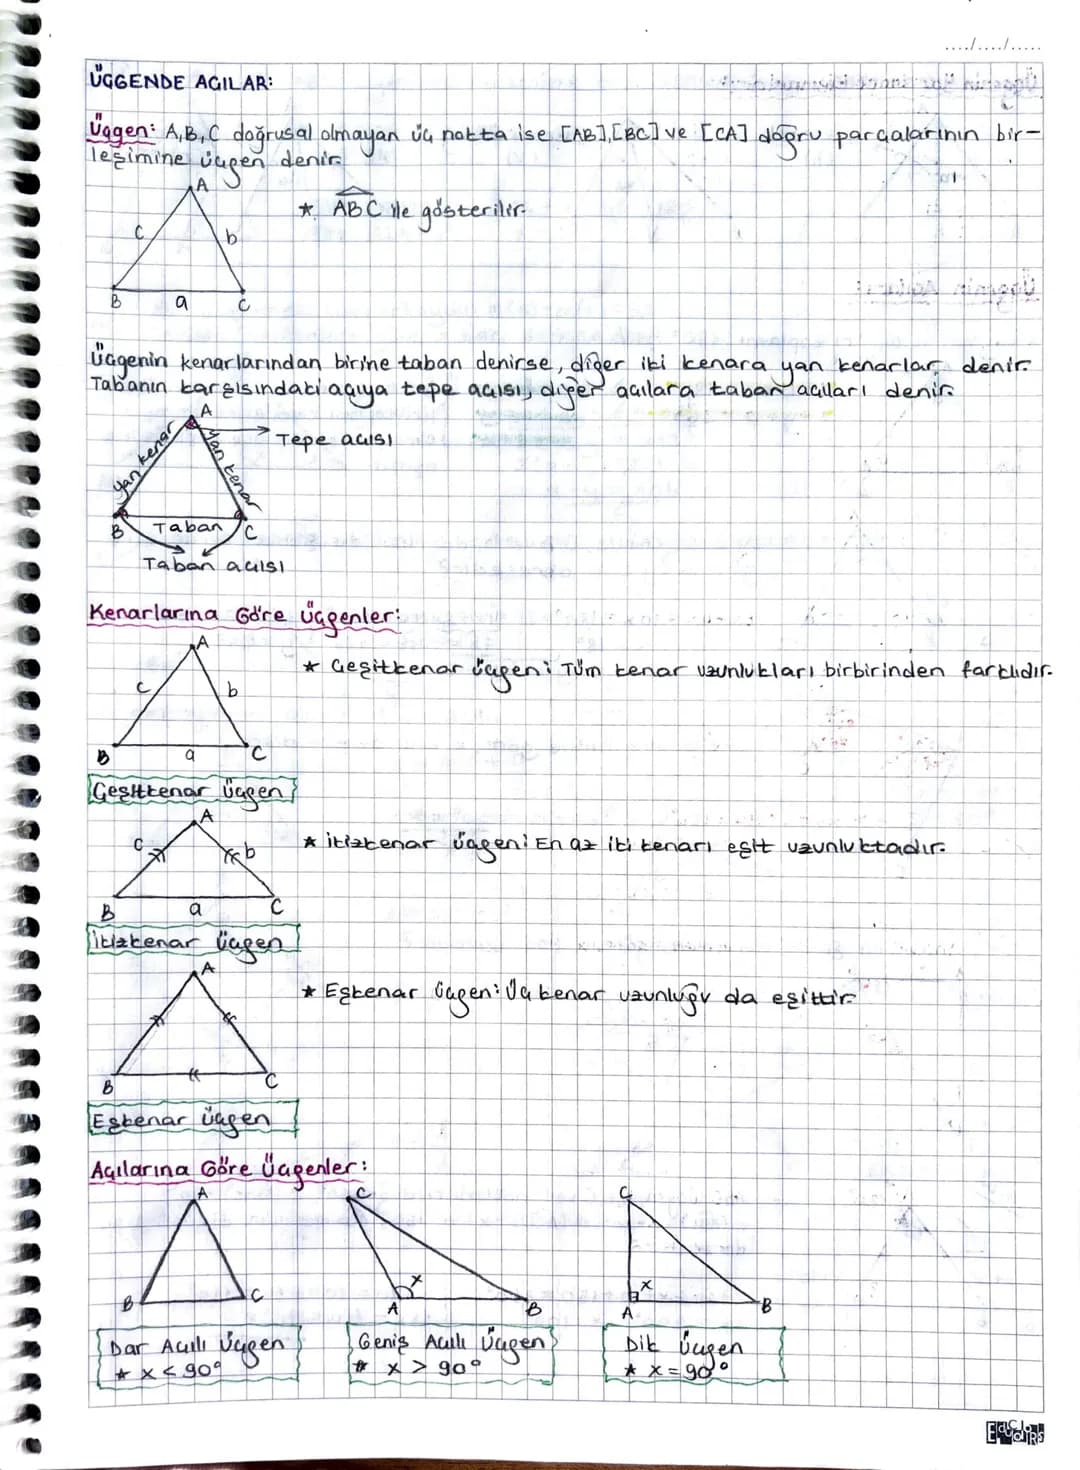 ..../..../.....
ÜÇGENDE AÇILAR:
Üçgen: A,B,C doğrusal olmayan üç nokta ise [AB],[BC] ve [CA] doğru parçalarının bir-
leşimine üçgen denir.
A
★ ABC ile gösterilir.
c b
B a C
Üçgenin kenarlarından birine taban denirse, diğer iki kenara yan kenarlar denir.
Tabanın karşısındaki açıya tepe açısı, diğer açılara taban açıları denir.
A
Tepe açısı
Yan kenar Yan kenar
B Taban C
Taban açısı
Kenarlarına Göre Üçgenler:
A
★ Çeşitkenar üçgen: Tüm kenar uzunlukları birbirinden farklıdır.
c b
B a C
Çeşitkenar Üçgen
A
★ İkizkenar üçgen: En az iki kenarı eşit uzunluktadır.
c b
B a C
İkizkenar Üçgen
A
★ Eşkenar üçgen: Üç kenar uzunluğu da eşittir.
B C
Eşkenar üçgen
Açılarına Göre Üçgenler:
A C C
x x
B C A B A B
Dar Açılı Üçgen Geniş Açılı Üçgen Dik Üçgen
★ x < 90° ★ x > 90° ★ x = 90°